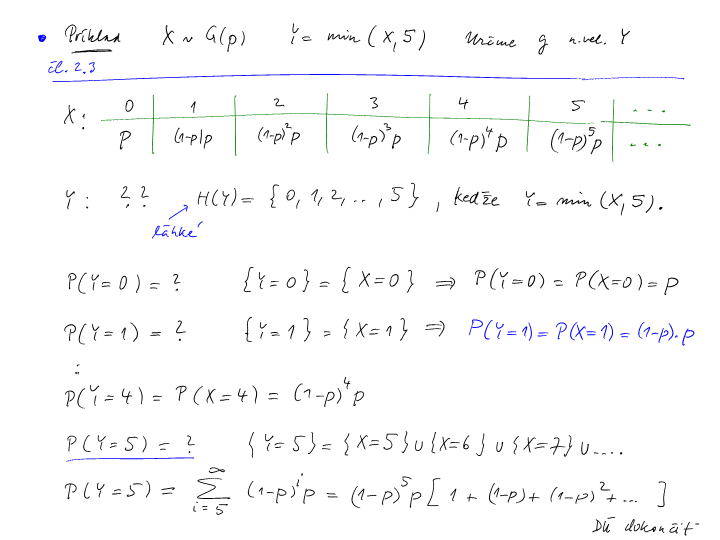 • Príklad X ~ G(p) Y = min (X, 5) Určíme g n.vel. Y
čl. 2.3
X: 0 1 2 3 4 5 ...
p (1-p)p (1-p)²p (1-p)³p (1-p)⁴p (1-p)⁵p ...
Y: ?? H(Y) = {0, 1, 2, .., 5}, keďže Y = min (X, 5).
ľahké
P(Y=0) = ? {Y=0} = {X=0} ⇒ P(Y=0) = P(X=0) = p
P(Y=1) = ? {Y=1} = {X=1} ⇒ P(Y=1) = P(X=1) = (1-p).p
⋮
P(Y=4) = P(X=4) = (1-p)⁴p
P(Y=5) = ? {Y=5} = {X=5} ∪ {X=6} ∪ {X=7} ∪ ....
P(Y=5) = ∑_{i=5}^{∞} (1-p)ⁱp = (1-p)⁵p [1 + (1-p) + (1-p)² + ... ]
DÚ dokončiť